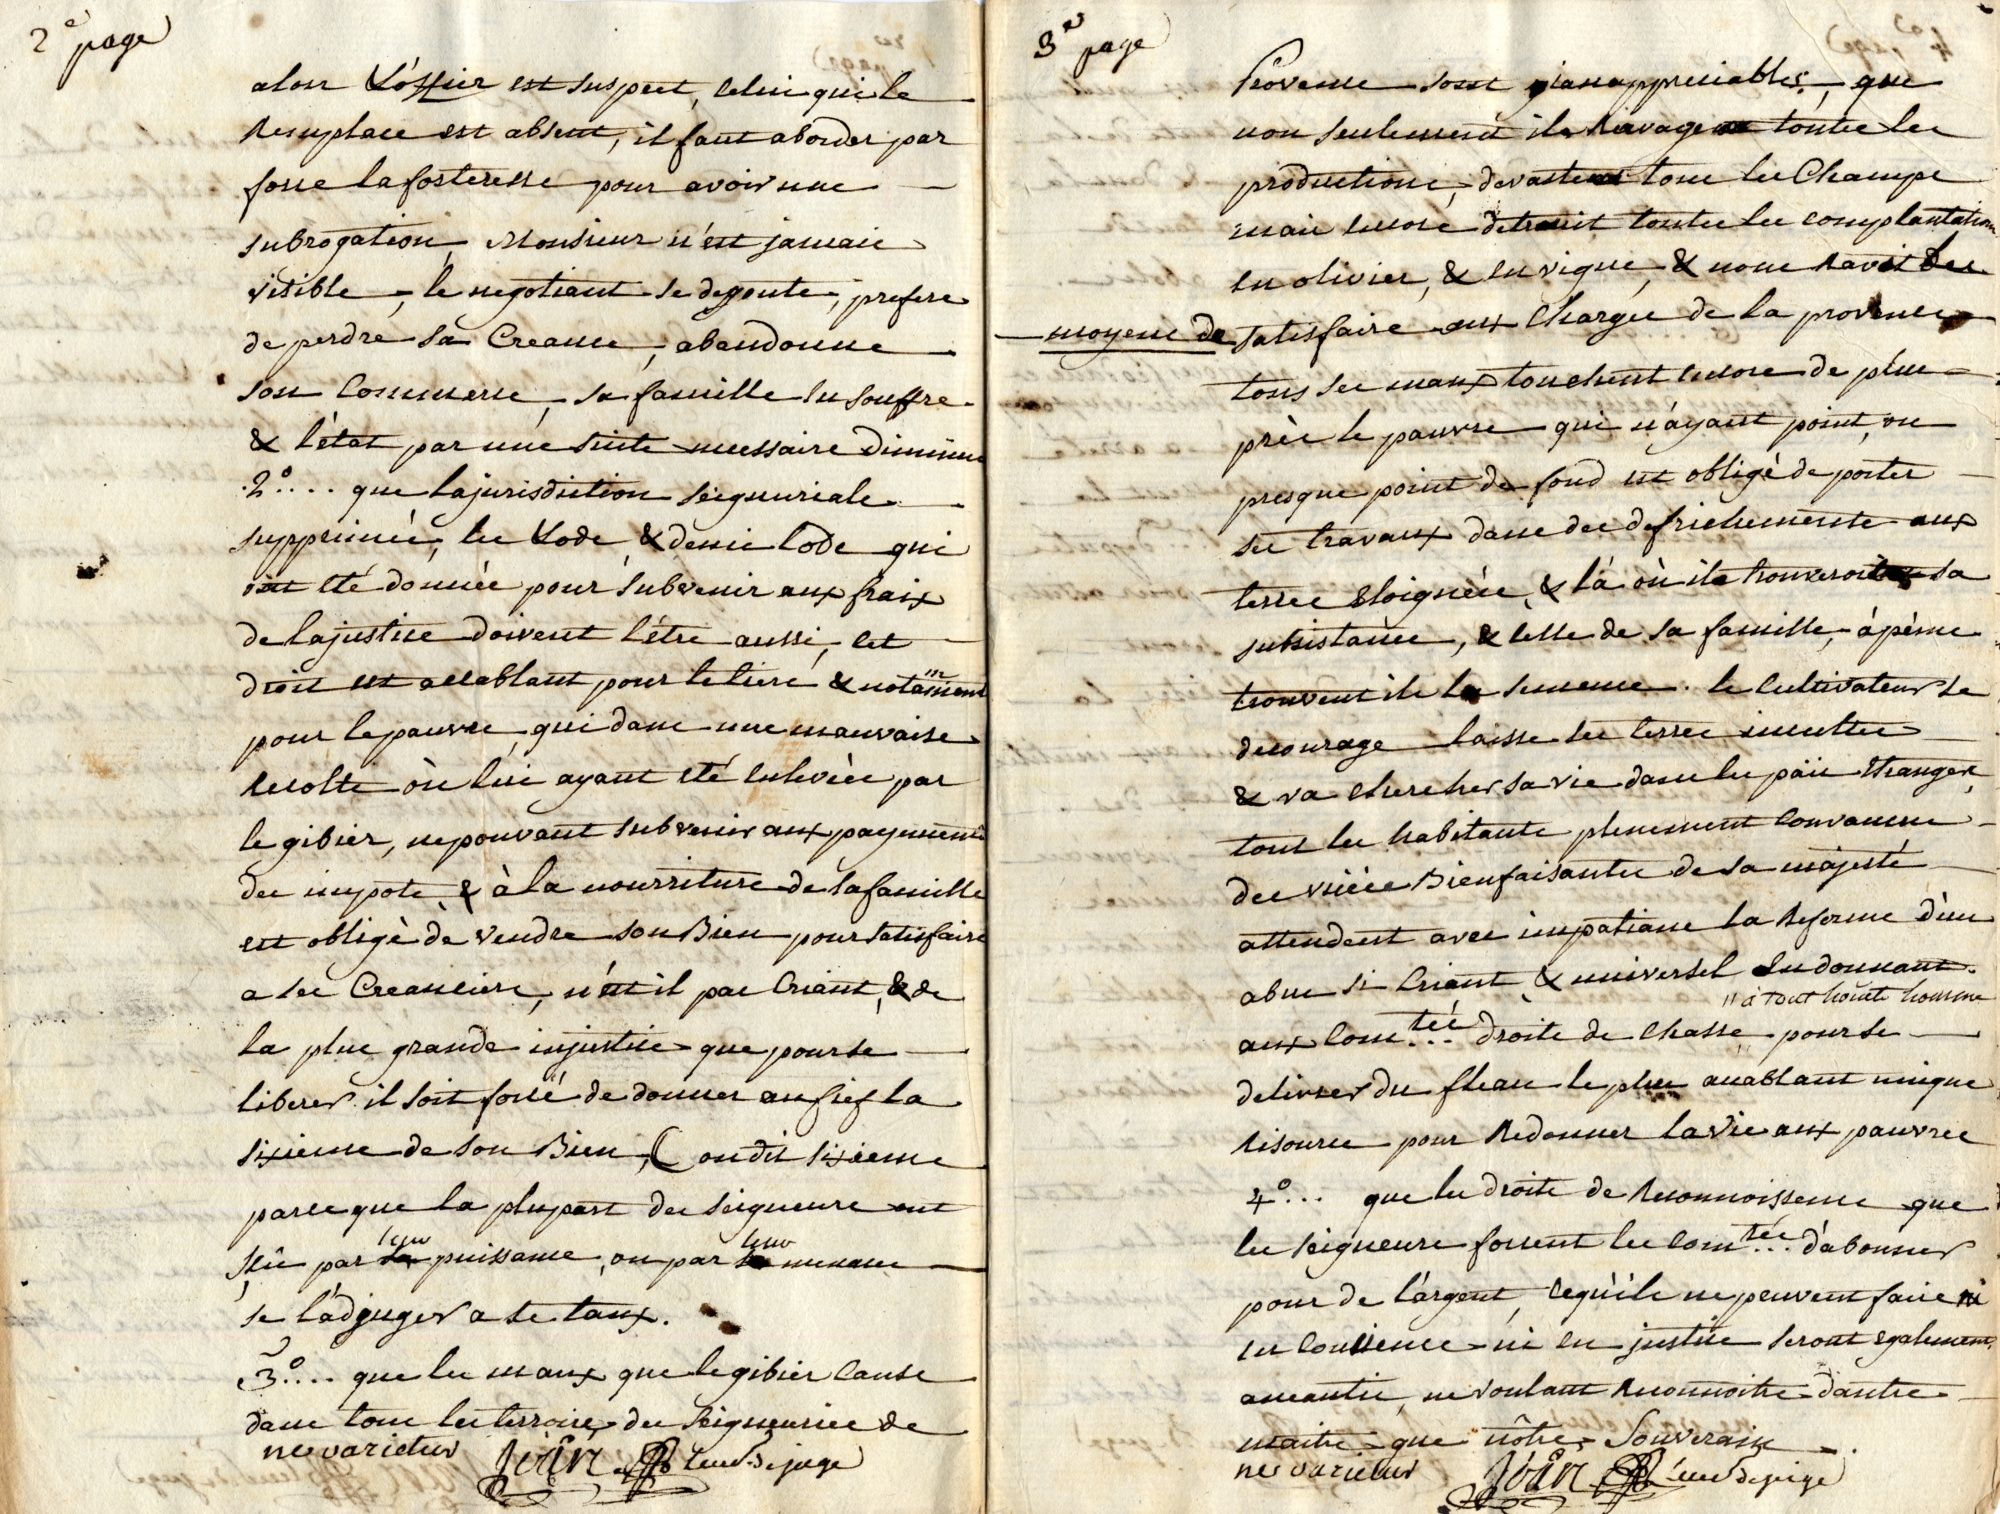 2e page
alors L'offier est suspect, celui qui le
Remplace est absent, il faut aborder par
forse la forteresse pour avoir une
subrogation, Monsieur n'est jamais
visible, le negotiant se degoute, prefere
de perdre sa Creance, abandonne
son Commerse, sa famille en souffre
& l'état par une suitte necessaire diminue
2°.... que la jurisdiction seigneuriale
supprimée, les Lods, & demi lods qui
ont été donnés pour subvenir aux fraix
de la justice doivent l'étre aussi, cet
droit est accablant pour le tiers & notamment
pour le pauvre qui dans une mauvaise
Recolte où lui ayant eté enlevée par
le gibier, ne pouvant subvenir aux payements
des impots, & à la nourriture de sa famille
est obligé de vendre son Bien pour satisfaire
a ses Creanciers, n'est il pas Criant, & de
la plus grande injustice que pour se
liberer il soit forsé de donner au fief la
sixieme de son Bien, (on dit sixieme
parce que la plupart des seigneurs ont
sçû par leur puissance, ou par leur menace
se l'adjuger a ce taux.
3°.... que les maux que le gibier cause
dans tous les terroirs des seigneuries de
ne varietur Jèan lieut de juge
3e page
Provence sont inappreciables, que
non seulement ils Ravagent toutes les
productions, devastent tous les Champs
mais encore detruit toutes les complantations
en olivier, & en vigne, & nous Ravit des
moyens de satisfaire aux Charges de la provence
tous ses maux touchent encore de plus
près le pauvre qui n'ayant point, ou
presque point de fond est obligé de porter
ses travaux dans des defrichements aux
terres eloignées, & là où ils trouveroit sa
subsistance, & celle de sa famille, à péne
trouvent ils la semence. le Cultivateur se
decourage laisse ses terres incultes
& va chercher sa vie dans les païs etranger,
tout les habitants plenement Convancus
des vuées Bienfaisantes de sa majesté
attendent avec impatiance la Reforme d'un
abus si Criant & universel en donnant
"à tout honéte homme
aux Com.tés droits de chasse pour se
delivrer du fleau le plus accablant unique
Risource pour Redonner la vie aux pauvres
4°... que les droits de Reconnoissence que
les seigneurs forsent les com.tés d'abonner
pour de l'argent, cequ'ils ne peuvent faire ni
en consience ni en justice seront egalement
aneantis, ne voulant Reconnoitre d'autre
maitre que nôtre Souverain.
ne varietur Jèan lieut de juge